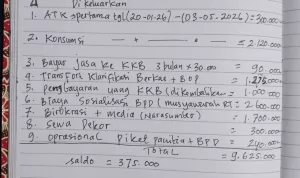 Di keluarkan
1. ATK pertama tgl (20-01-26) - (03-05-2026) = 300.000
2. Konsumsi = 2.120.000
3. Bayar Jasa ke KKB 3 bulan x 30.000 = 90.000
4. Transfort Klarifikasi Berkas + BOP = 1.275.000
5. pengbayaran uang KKB (dikembalikan) = 1.000.000
6. Biaya Sosialisasi BPD (musyawarah RT) = 2.600.000
7. Birokrasi + media (Narasumber) = 1.700.000
8. Sewa Dekor = 300.000
9. oprasional Piket panitia + BPD = 240.000
Total = 9.625.000
saldo = 375.000